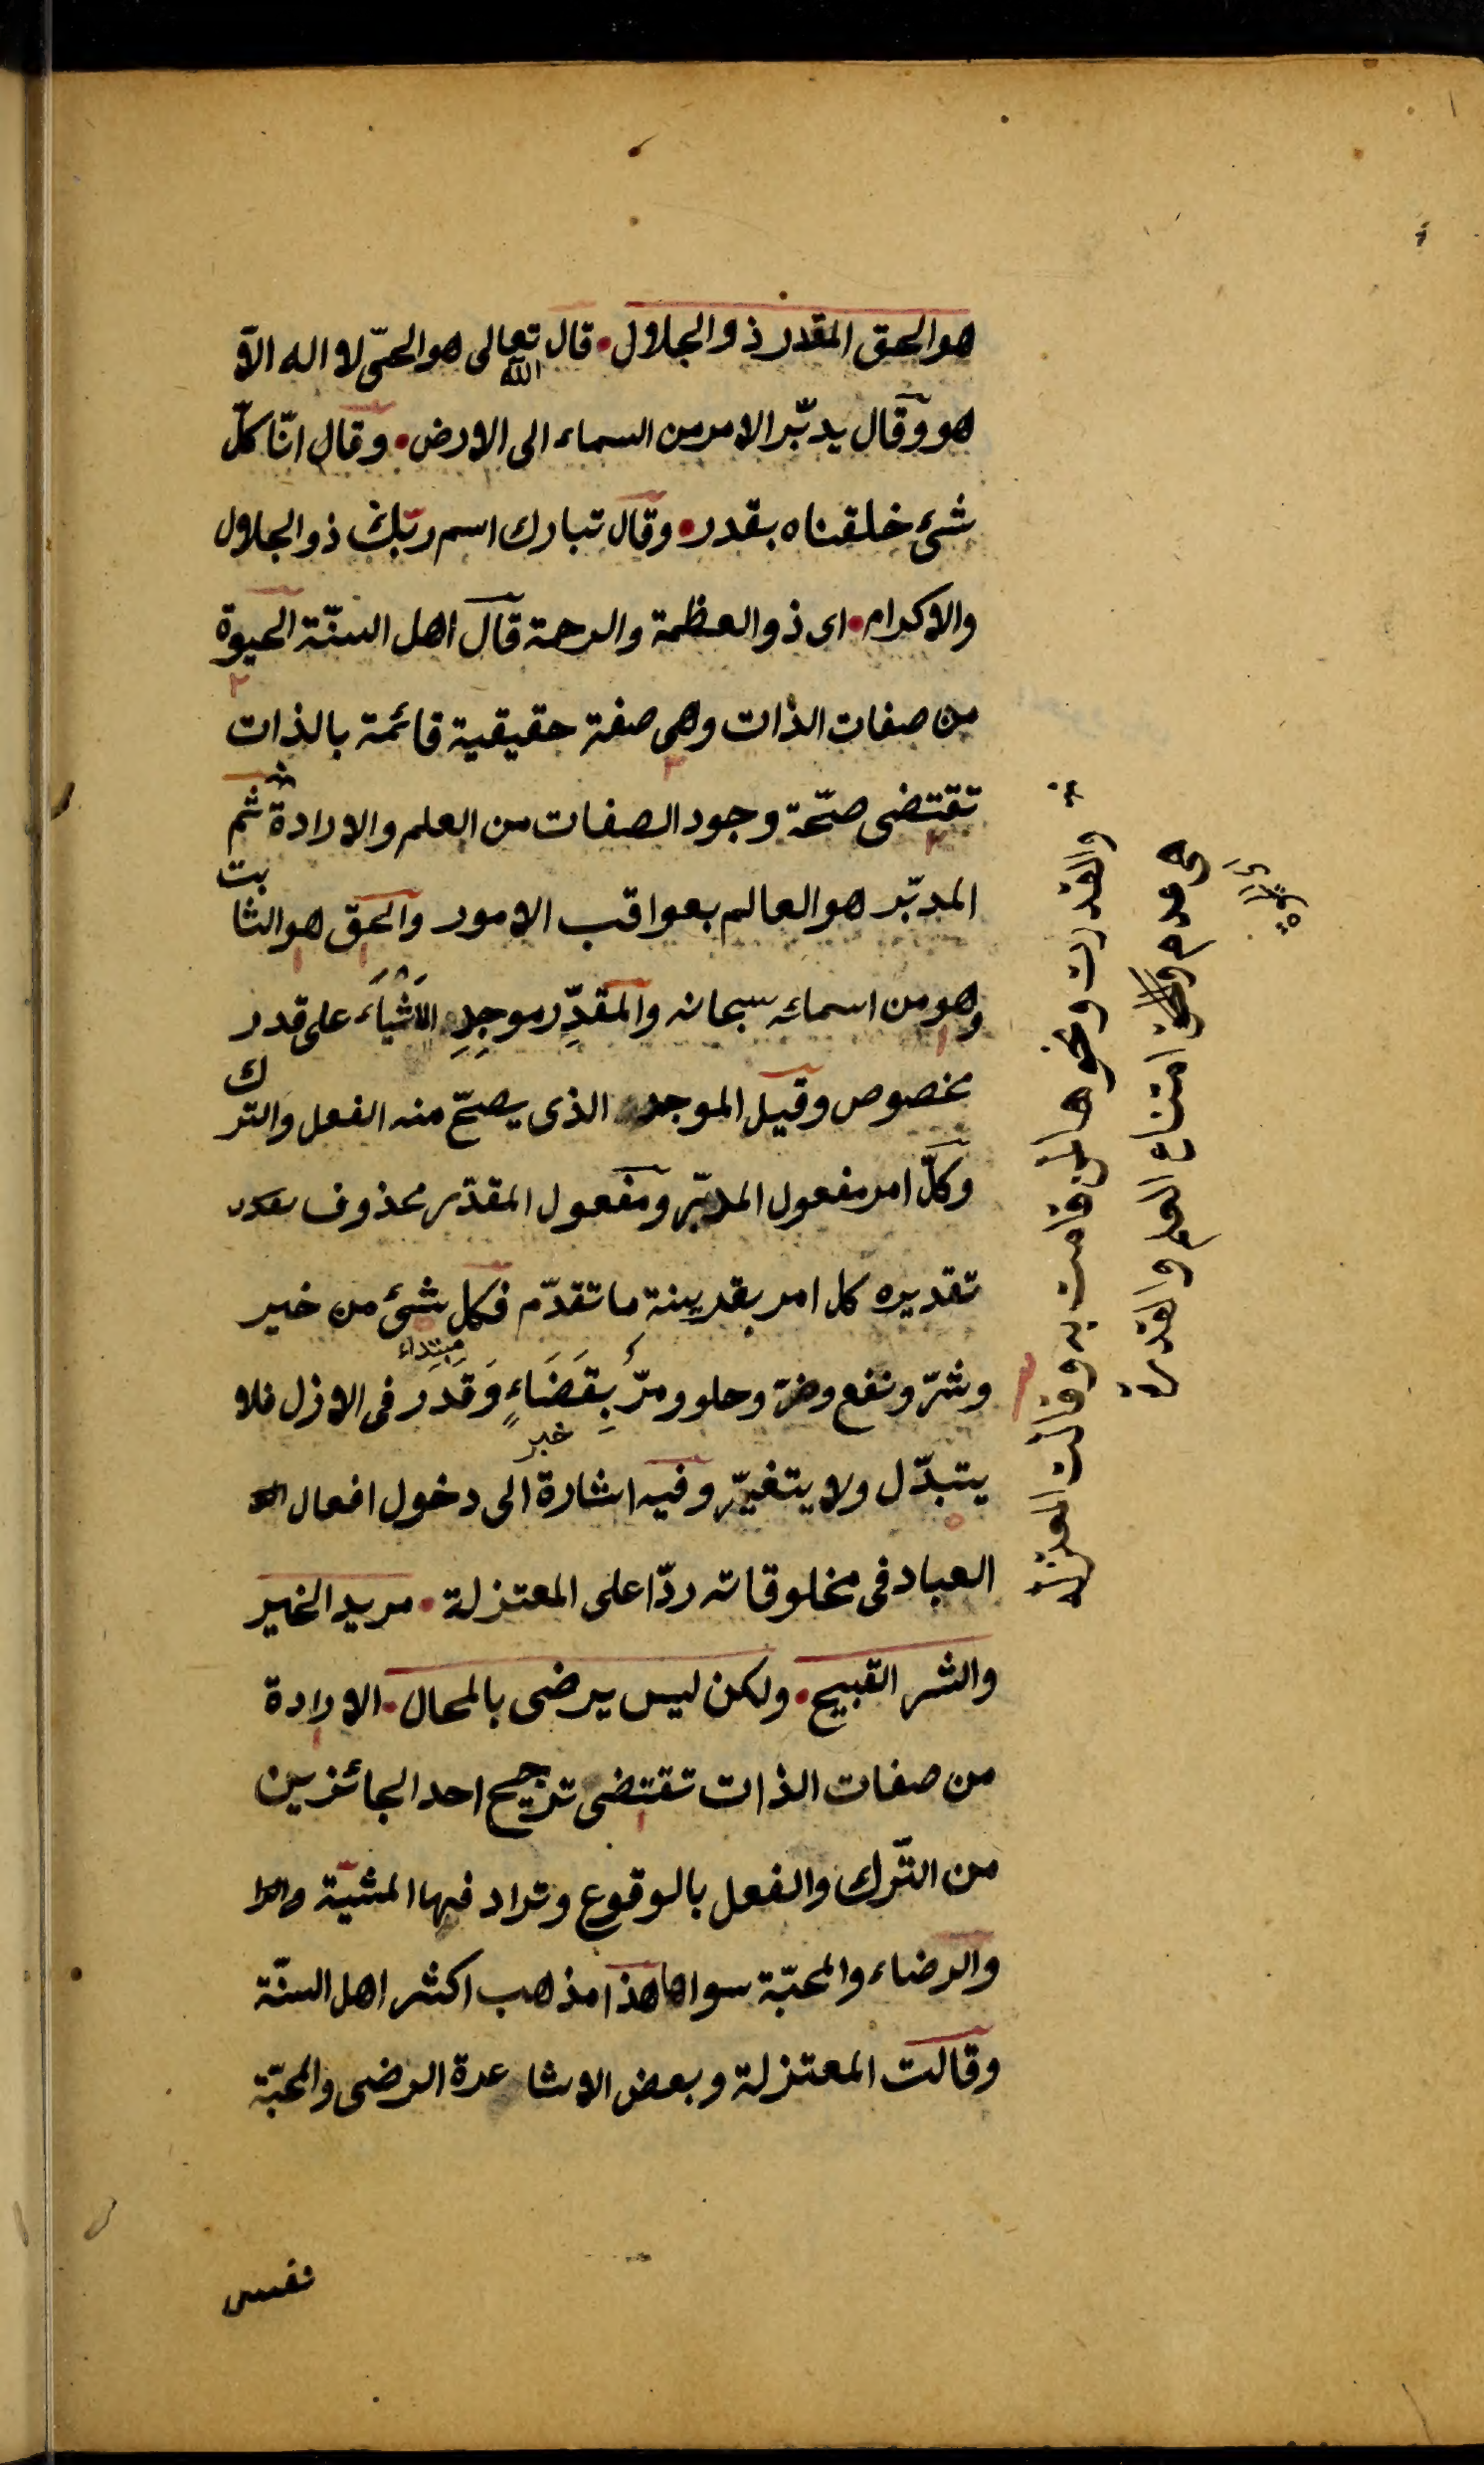 هو الحق المقدر ذو الجلال • قال الله تعالى هو الحىّ لا اله الاّ
هو وقال يدبّر الامر من السماء الى الارض • وقال انّا كلّ
شئ خلقناه بقدر • وقال تبارك اسم ربّك ذو الجلال
والاكرام • اى ذو العظمة والرحمة قال اهل السنّة الحيوة
من صفات الذات وهى صفة حقيقية قائمة بالذات
تقتضى صحّة وجود الصفات من العلم والارادة ثم
المدبّر هو العالم بعواقب الامور والحق هو الثابت
وهو من اسمائه سبحانه والمقدِّر موجِدِ الاَشْيَاَء على قدر
مخصوص وقيل الموجد الذى يصحّ منه الفعل والترك
وكلّ امر مفعول المدبّر ومفعول المقدّر محذوف
تقديره كل امر بقرينة ما تقدّم فكل شئ من خير
مبتداء
وشرّ ونفع وضرّ وحلو ومرّ بِقَضَاءٍ وَقَدَر فى الازل فلا
خبر
يتبدّل ولا يتغيّر وفيه اشارة الى دخول افعال
العباد فى مخلوقاته ردّا على المعتزلة • مريد الخير
والشر القبيح • ولكن ليس يرضى بالمحال • الارادة
من صفات الذات تقتضى ترجيح احد الجائزين
من التّرك والفعل بالوقوع وترادفها المشيّة
والرضاء والمحبّة سواها هذا مذهب اكثر اهل السنّة
وقالت المعتزلة وبعض الاشاعرة الرضى والمحبّة
نفس
والقدرت ونحوها لمن قامت به وقالت المعتزلة
هى عدم امتناع العلم والقدرة